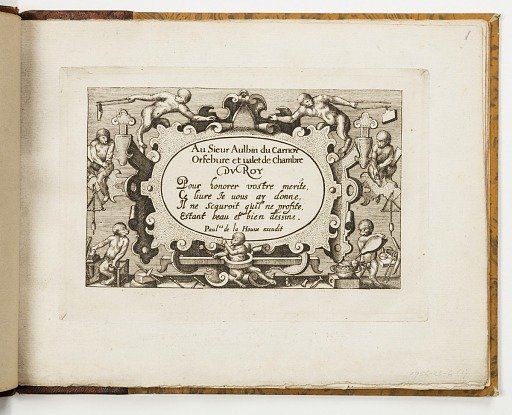 Au Sieur Aulbin du Carnoy
Orfebure et ualet de Chambre
DV ROY
Pour honorer vostre merite,
Ce liure Je vous ay donne,
Il ne scauroit quil ne profite,
Estant beau et bien dessine.
Paul.us de la Houue excudit
1